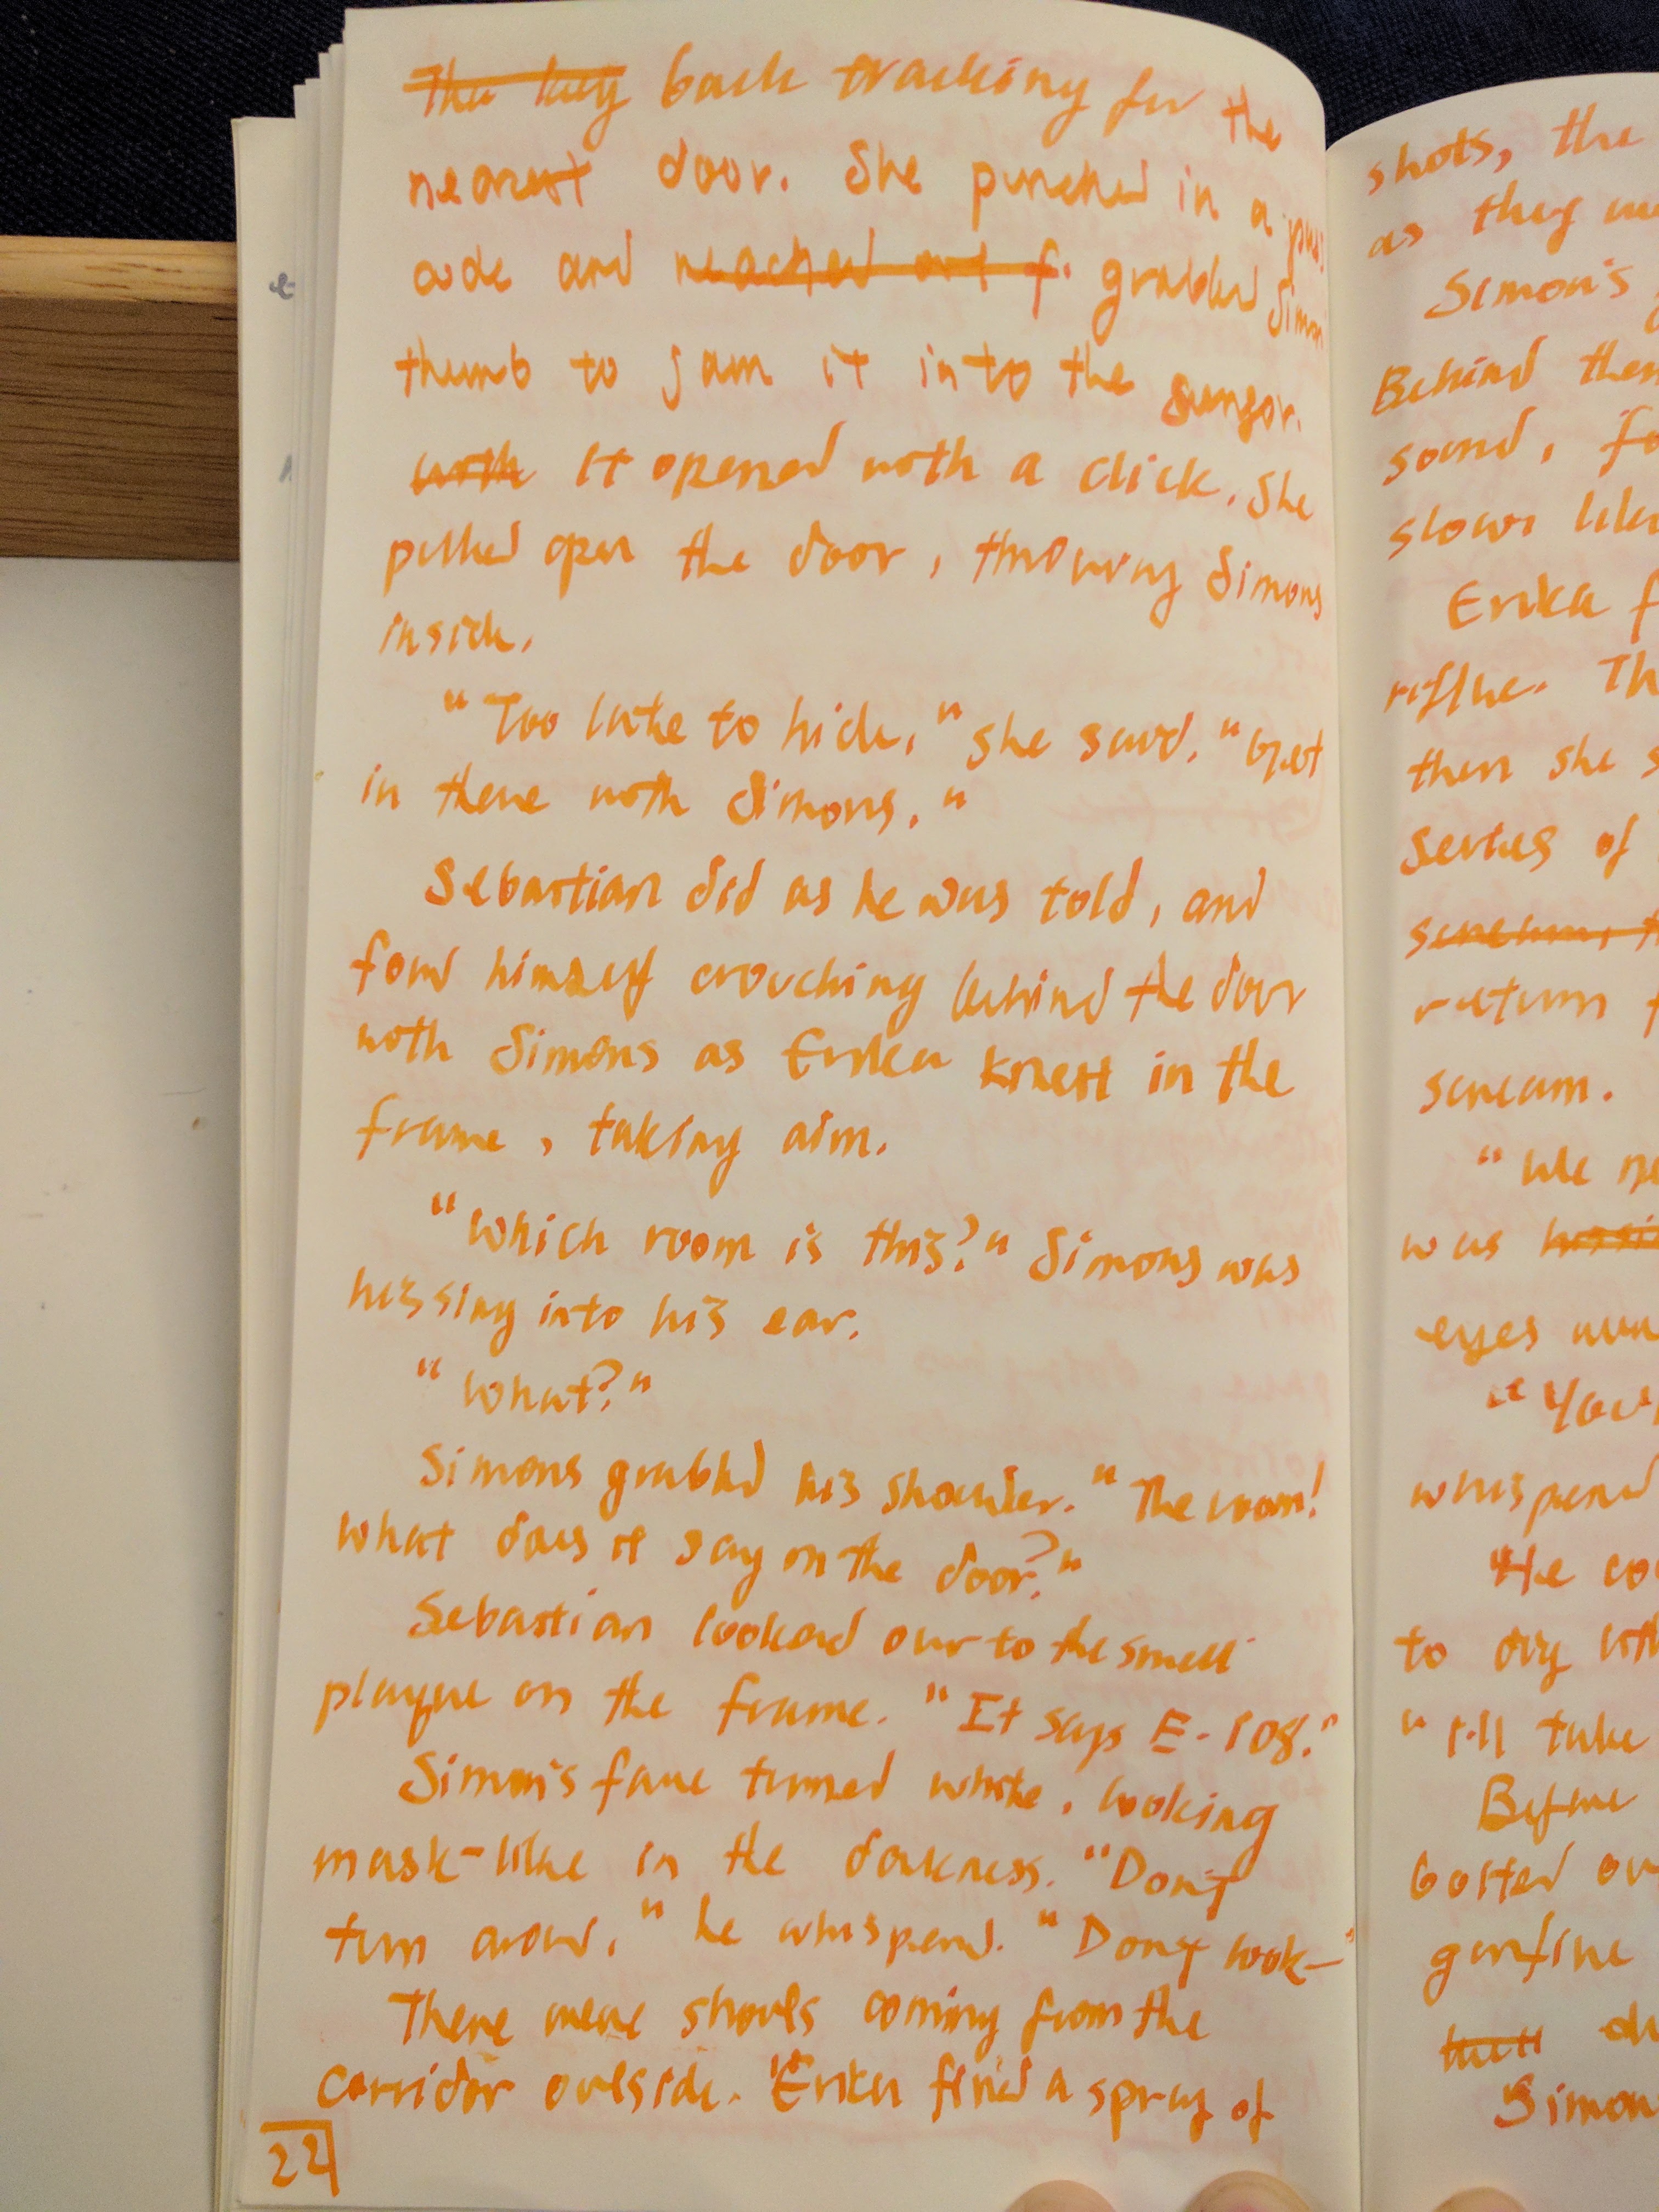 The key back tracking for the
nearest door. She punched in a
code and reached out f. grabbed Simon
thumb to jam it into the sensor.
with It opened with a click. She
pulled open the door, throwing Simons
inside.
"Too late to hide," she said. "Get
in there with Simons."
Sebastian did as he was told, and
found himself crouching behind the door
with Simons as Erika knelt in the
frame, taking aim.
"Which room is this?" Simons was
hissing into his ear.
"What?"
Simons grabbed his shoulder. "The room!
What does it say on the door?"
Sebastian looked over to the small
plaque on the frame. "It says E-108."
Simon's face turned white, looking
mask-like in the darkness. "Don't
turn around," he whispered. "Don't look—"
There were shouts coming from the
corridor outside. Erika fired a spray of
22
shots, the
as they
Simon's
Behind them
sound,
slow, like
Erika f
rifle. Th
then she s
series of
scream, t
return f
scream.
"We ne
was hissi
eyes
"You
whispered
"He co
to
"I'll take
Before
bolted ov
gunfire
Simon